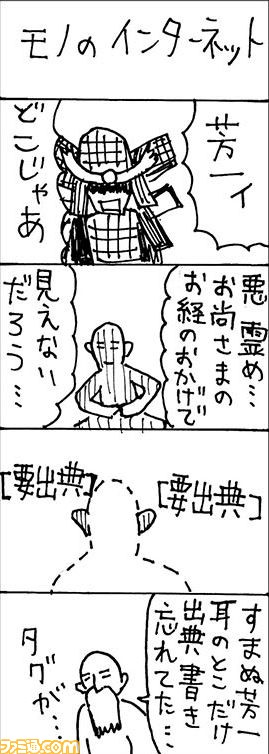 モノのインターネット
芳一ィ
どこじゃあ
悪霊め…
お尚さまの
お経のおかげで
見えない
だろう…
[要出典]
[要出典]
すまぬ芳一
耳のとこだけ
出典書き
忘れてた…
タグが…
ファミ通.com